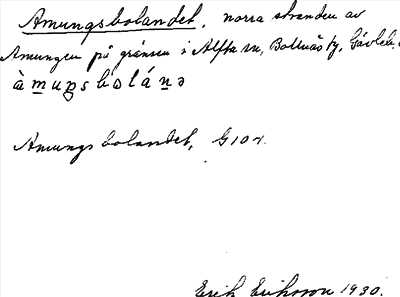 Åmungsbolandet, norra stranden av
Amungen på gränsen i Alfta sn, Bollnäs tg, Gävleb.
àmuŋsbɷláṉə
Åmungsbolandet, G10r.
Erik Eriksson 1930.